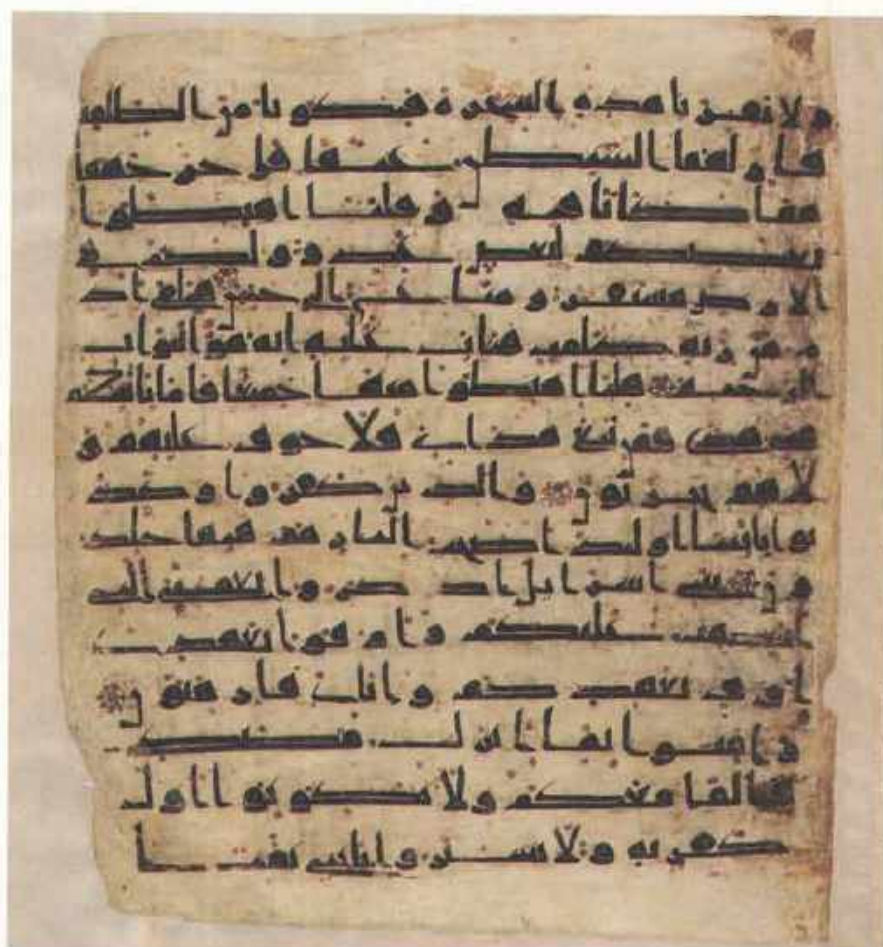 ولا تقربا هذه الشجرة فتكونا من الظلمين
فازلهما الشيطن عنها فاخرجهما
مما كانا فيه وقلنا اهبطوا
بعضكم لبعض عدو ولكم فى
الارض مستقر ومتاع الى حين فتلقى اد
م من ربه كلمت فتاب عليه انه هو التواب
الرحيم قلنا اهبطوا منها جميعا فاما ياتينكم
منى هدى فمن تبع هداى فلا خوف عليهم و
لا هم يحزنون والذين كفروا وكذ
بوا بايتنا اولئك اصحب النار هم فيها خلد
ون يبنى اسرايل اذكروا نعمتى التى
انعمت عليكم واوفوا بعهدى
اوف بعهدكم وايى فارهبون
وامنوا بما انزلت مصد
قا لما معكم ولا تكونوا اول
كفر به ولا تشتروا بايتى ثمنا